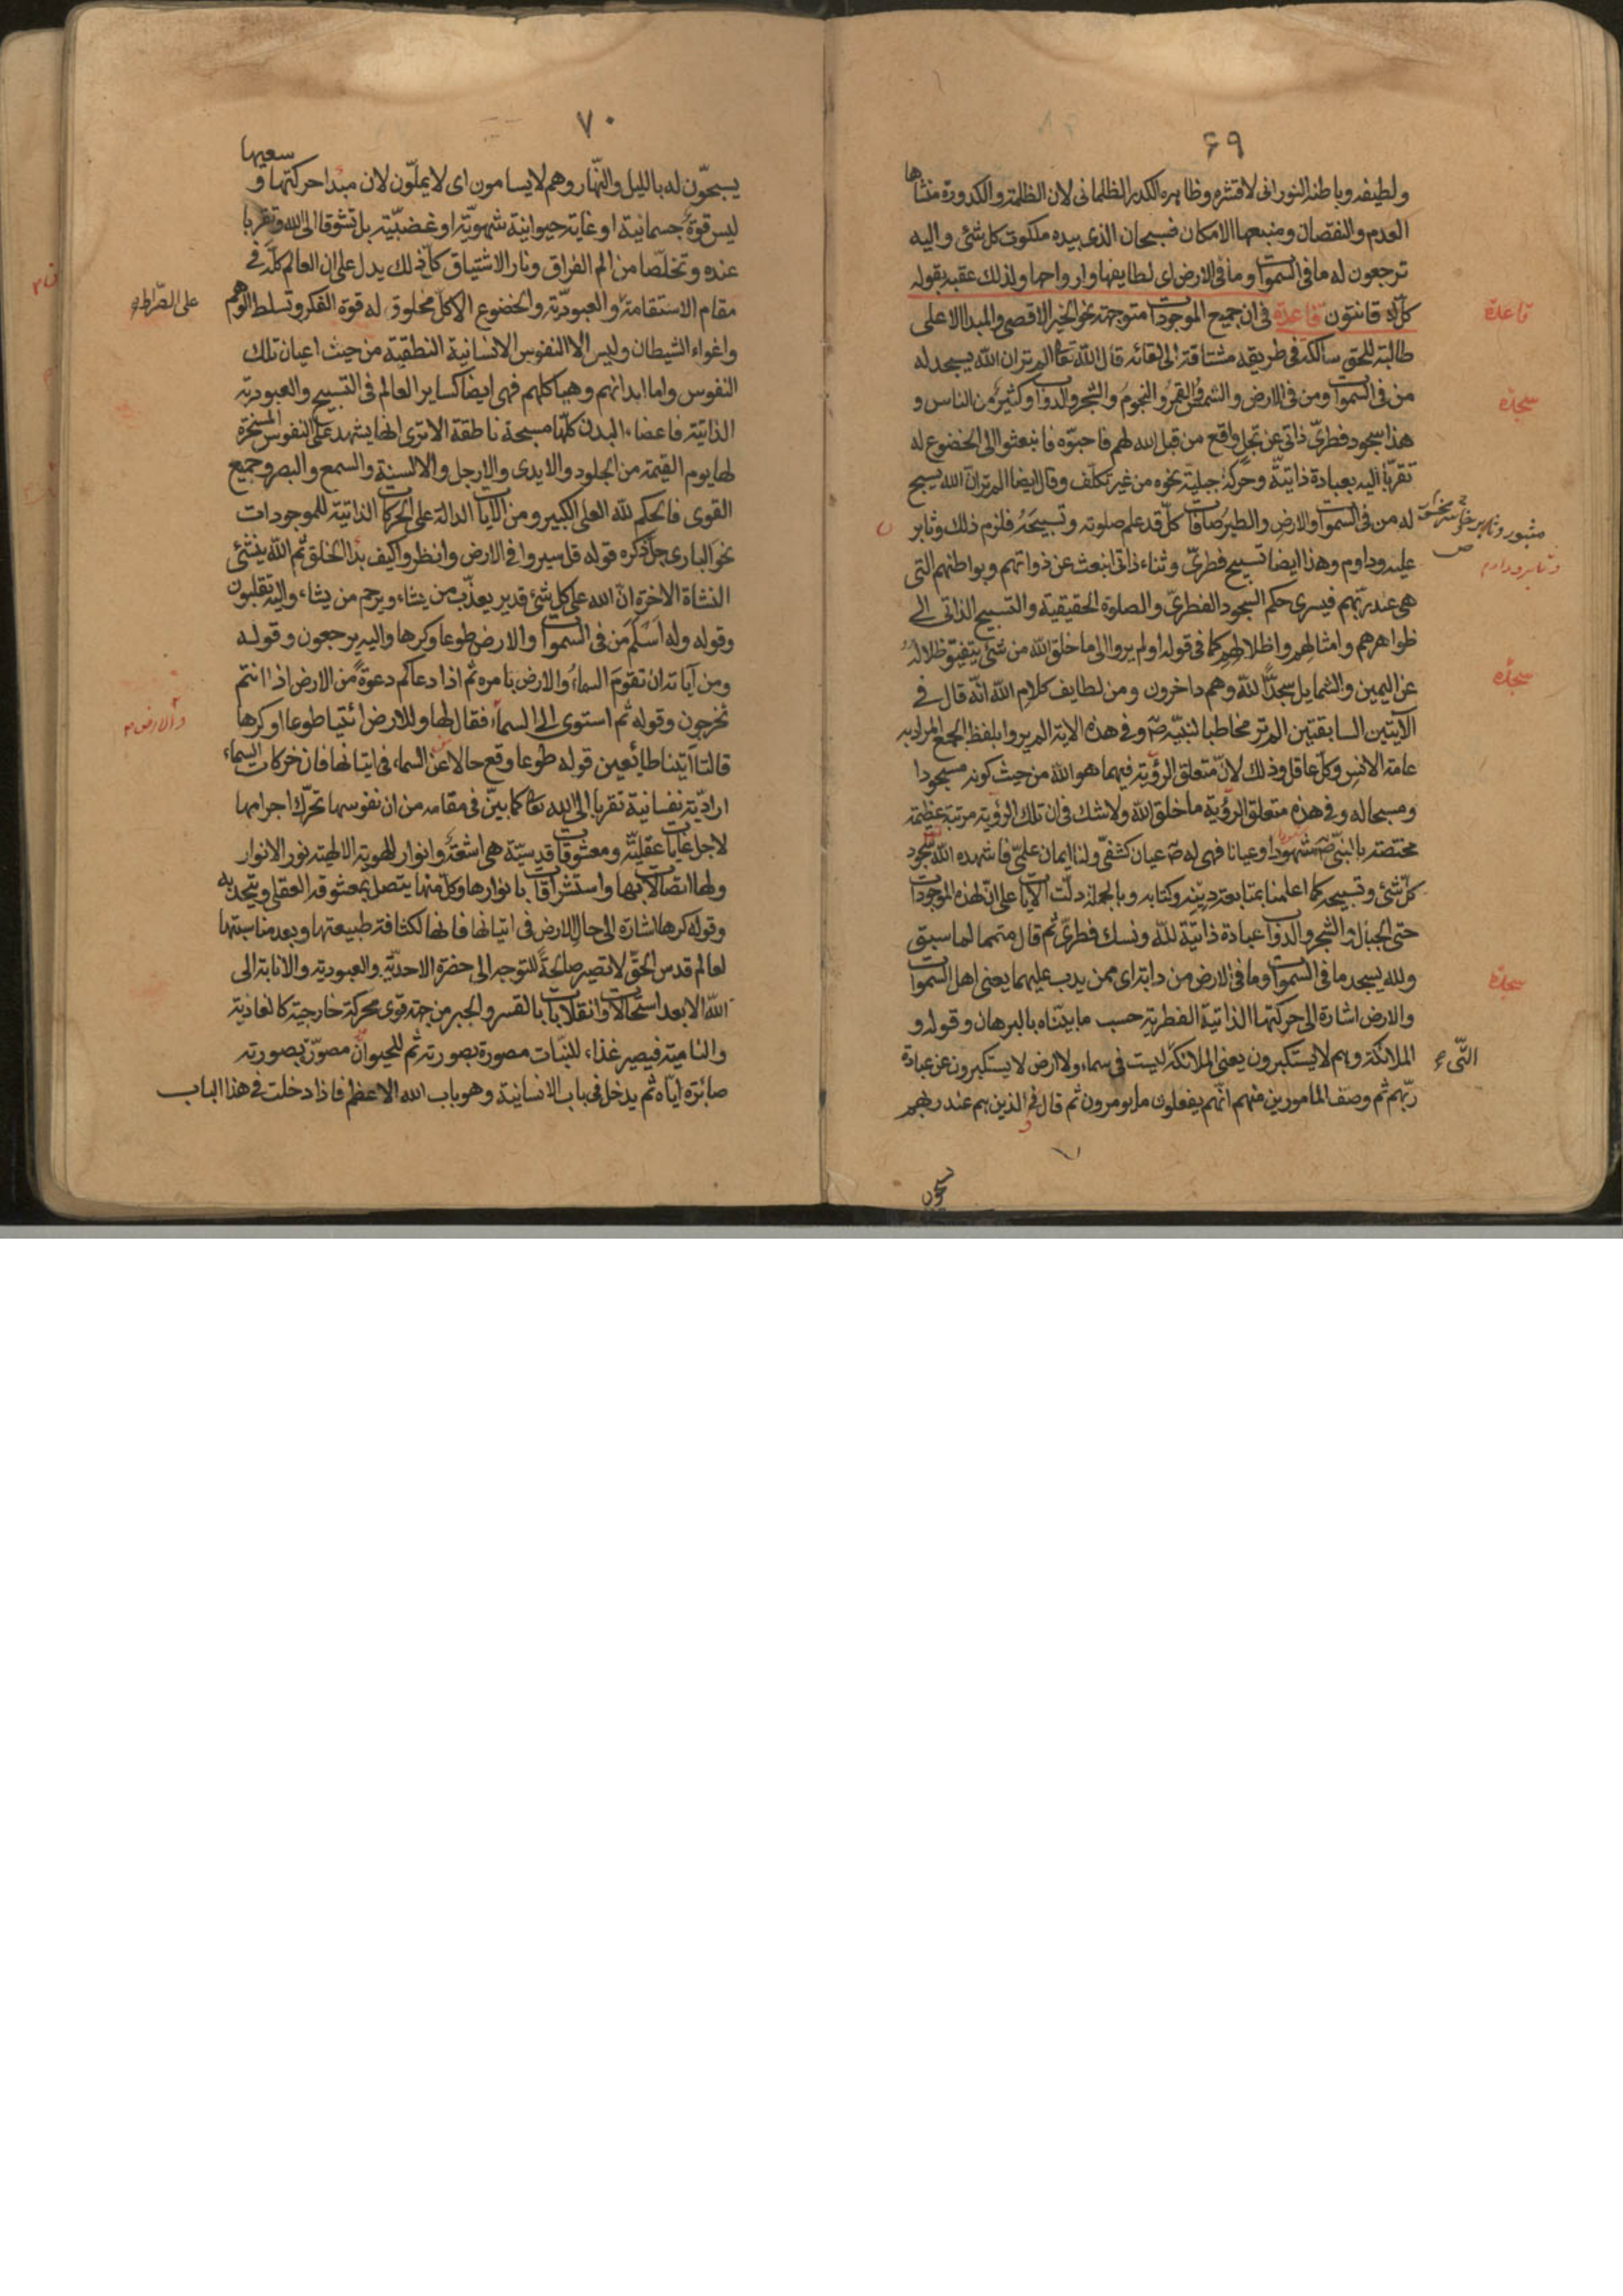 ٦٩
ولطيفه وباطنه النورانى لا قشره وظاهره الكدر الظلمانى لان الظلمة والكدورة منشاها
العدم والنقصان ومنبعها الامكان فسبحان الذى بيده ملكوت كل شئ واليه
ترجعون له ما فى السموات وما فى الارض اى لطايفها وارواحها ولذلك عقبه بقوله
كل له قانتون قاعدة فى ان جميع الموجودات متوجهة نحو الخير الاقصى والمبدا الاعلى
قاعدة
طالبة للحق سالكة فى طريقه مشتاقة الى لقائه قال الله تعا الم تر ان الله يسجد له
من فى السموات ومن فى الارض والشمس والقمر والنجوم والشجر والدواب وكثير من الناس و
سجدة
هذا سجود فطرىّ ذاتى عن تجل واقع من قبل الله لهم فاحبّوه فانبعثوا الى الخضوع له
تقرّبا اليه بعبادة ذاتيّة وحركة جبليّة نحوه من غير تكلّف وقال ايضا الم تر ان الله يسبح
له من فى السموات والارض والطير صافات كلّ قد علم صلوته وتسبيحه فلزم ذلك وثابر
عليه وداوم وهذا ايضا تسبيح فطرىّ وثناء ذاتى انبعث عن ذواتهم وبواطنهم التى
وثابر وداوم
هى عند ربّهم فيسرى حكم السجود الفطرىّ والصلوة الحقيقية والتسبيح الذاتى الى
ظواهرهم وامثالهم واظلالهم كما فى قوله اولم يروا الى ما خلق الله من شئ يتفيؤ ظلاله
عن اليمين والشمايل سجدًا لله وهم داخرون ومن لطايف كلام الله انّه قال فى
سجدة
الآيتين السابقتين الم تر مخاطبا لنبيّه ص وفى هذه الاية الم يروا بلفظ الجمع المراد به
عامة الانس وكلّ عاقل وذلك لانّ متعلق الرؤية فيهما هو الله من حيث كونه مسجودا
ومسبحا له وفى هذه متعلق الرؤية ما خلق الله ولا شك فى ان تلك الرؤية مرتبة عظيمة
مختصة بالنبىّ ص شهودا وعيانا فهى له ص عيان كشفىّ ولنا ايمان علمىّ فاشهده الله سجود
كلّ شئ وتسبيحه كما اعلمنا بمتابعة دينه وكتابه وبالجملة دلّت الايات على انّ لهذه الموجودات
حتى الجبال والشجر والدواب عبادة ذاتيّة لله ونسك فطرىّ ثم قال متمما لما سبق
ولله يسجد ما فى السموات وما فى الارض من دابة اى ممن يدب عليهما يعنى اهل السموات
سجدة
والارض اشارة الى حركتهما الذاتية الفطرية حسب ما بيّنّاه بالبرهان وقوله و
الملائكة وهم لا يستكبرون يعنى الملائكة ليست فى سماء ولا ارض لا يستكبرون عن عبادة
التى
ربّهم ثم وصف المامورين منهم انّهم يفعلون ما يومرون ثم قال فى الذين هم عند ربهم
٧٠
يسبحّون له بالليل والنّهار وهم لا يسامون اى لا يملّون لان مبدا حركتها وسعيها
ليس قوة جسمانية او غاية حيوانية شهويّة او غضبيّة بل تشوقا الى الله وتقربا
عنده وتخلّصا من الم الفراق ونار الاشتياق كلّ ذلك يدل على ان العالم كلّه فى
مقام الاستقامة والعبوديّة والخضوع الا كلّ مخلوق له قوة الفكر وتسلط الوهم
على الصّراط
واغواء الشيطان وليس الا النفوس الانسانية النطقيّة من حيث اعيان تلك
النفوس واما ابدانهم وهياكلهم فهى ايضا كساير العالم فى التسبيح والعبودية
الذاتيّة فاعضاء البدن كلّها مسبحة ناطقة الا ترى انها يشهد على النفوس المسخرة
لها يوم القيمة من الجلود والايدى والارجل والالسنة والسمع والبصر وجميع
القوى فالحكم لله العلى الكبير ومن الآيات الدالة على الحركات الذاتيّة للموجودات
نحو البارى جلّ ذكره قوله قل سيروا فى الارض وانظروا كيف بدا الخلق ثم الله ينشئ
النشاة الاخرة انّ الله على كل شئ قدير يعذّب من يشاء ويرحم من يشاء واليه تقلبون
وقوله وله اسلم من فى السموات والارض طوعا وكرها واليه يرجعون وقوله
ومن آياته ان تقوم السماء والارض بامره ثم اذا دعاكم دعوة من الارض اذا انتم
تخرجون وقوله ثم استوى الى السماء فقال لها وللارض ائتيا طوعا او كرها
والارض
قالتا آتينا طايعين قوله طوعا وقع حالا عن السماء فى اتيانها فان حركات السماء
اراديّة نفسانية تقربا الى الله تعا كما بيّن فى مقامه من ان نفوسها تحرّك اجرامها
لاجل غايات عقليّة ومعشوقات قدسيّة هى اشعّة وانوار للهوية الالهية نور الانوار
ولها اتصالات بها واستشراقات بانوارها وكل منها يتصل بمعشوقه العقلى ويتحد به
وقوله كرها اشارة الى حال الارض فى اتيانها فانها لكثافة طبيعتها وبعد مناسبتها
لعالم قدس الحقّ لا تصير صالحة للتوجه الى حضرة الاحديّة والعبودية والانابة الى
الله الا بعد استحالات وانقلابات بالقسر والجبر من جهة قوى محركة خارجية كالغاذية
والنامية فيصير غذاء للنبات مصورة بصورته ثم للحيوان مصوّرة بصورته
صائرة ايّاه ثم يدخل فى باب الانسانية وهو باب الله الاعظم فاذا دخلت فى هذا الباب